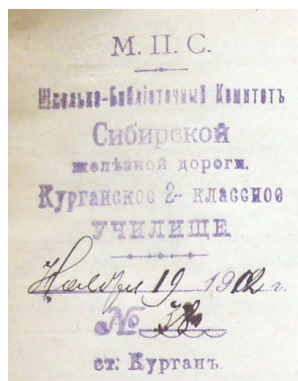 М. П. С.
Школьно-Библіотечный Комитетъ
Сибирской
желѣзной дороги.
Курганское 2- классное
УЧИЛИЩЕ
Ноября 19 1912 г.
№ 38
ст. Курганъ.